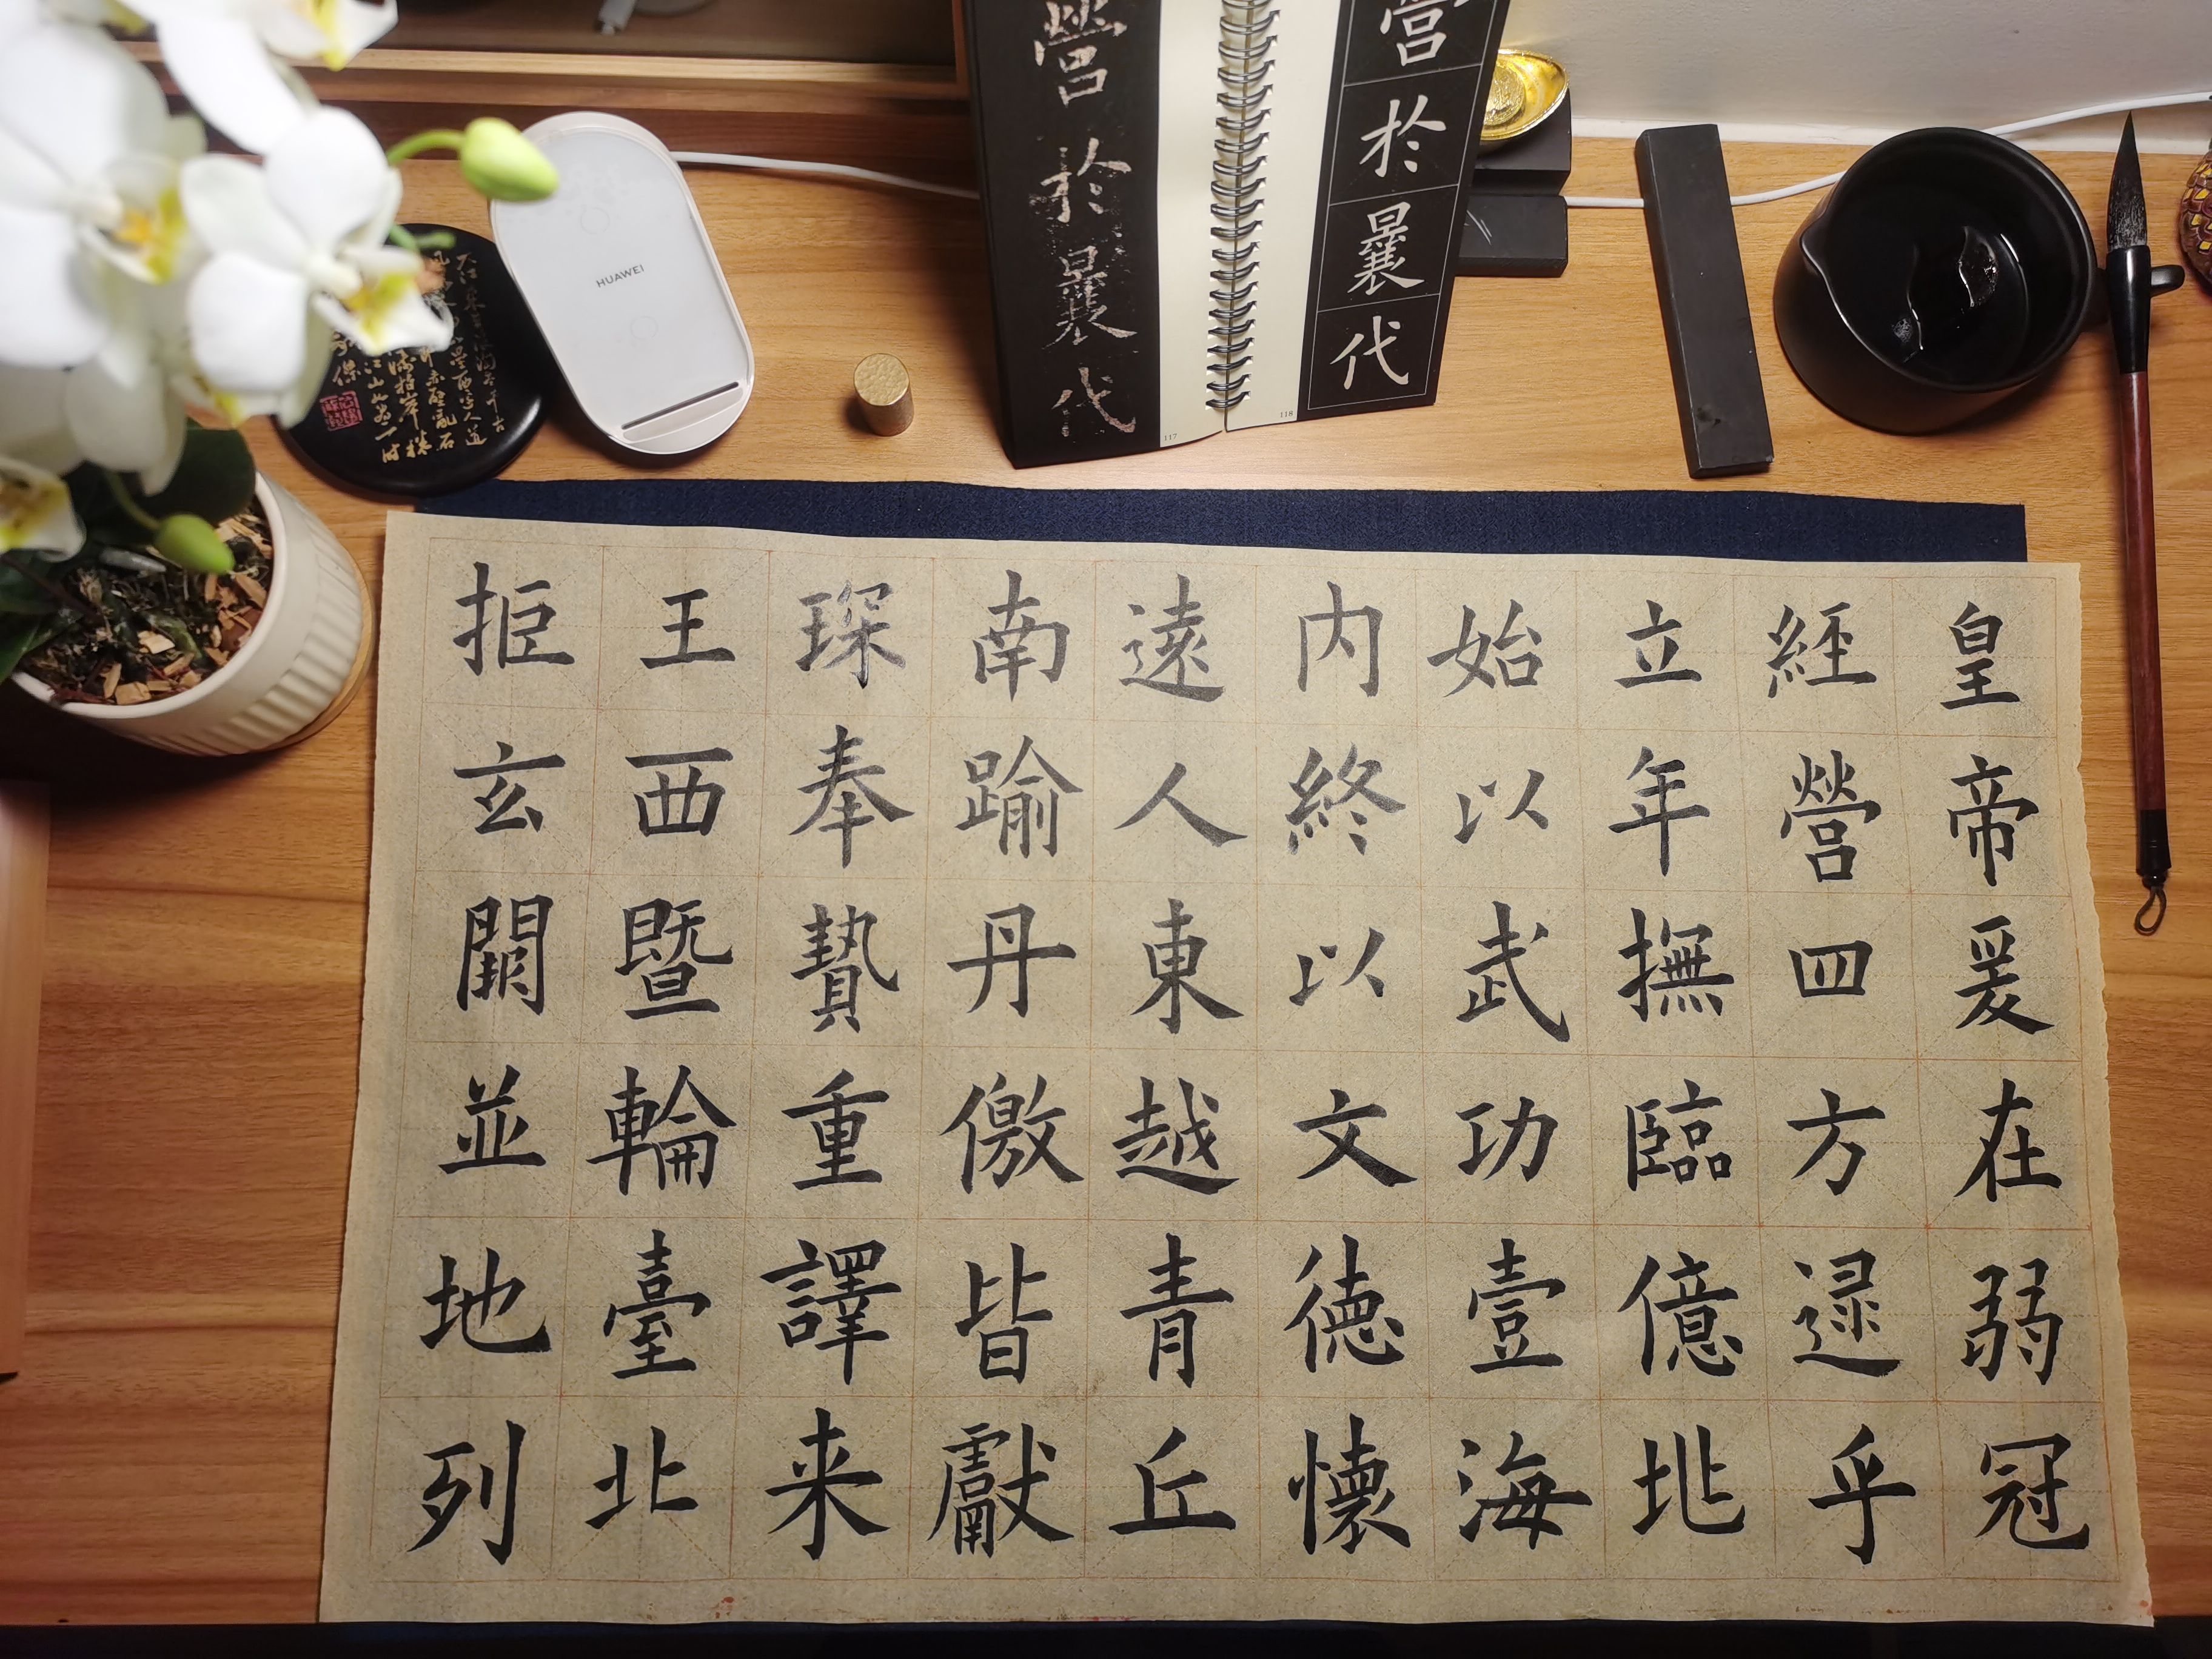 皇帝爰在弱冠
經營四方逮乎
立年撫臨億兆
始以武功壹海
内終以文徳懷
遠人東越青丘
南踰丹儌皆獻
琛奉贄重譯来
王西暨輪臺北
拒玄闕並地列
營於曩代
117
營於曩代
118
HUAWEI